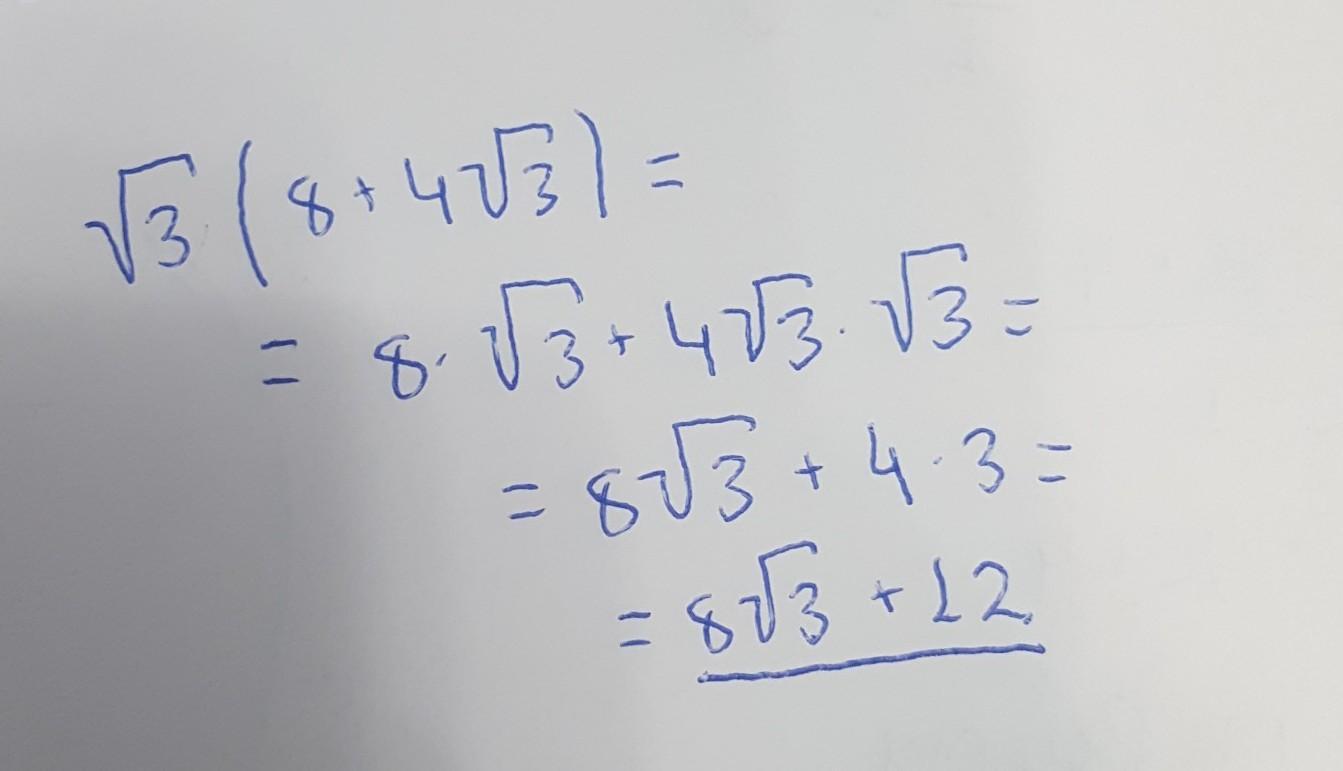 √3 (8 + 4√3) =
= 8 · √3 + 4√3 · √3 =
= 8√3 + 4 · 3 =
= 8√3 + 12